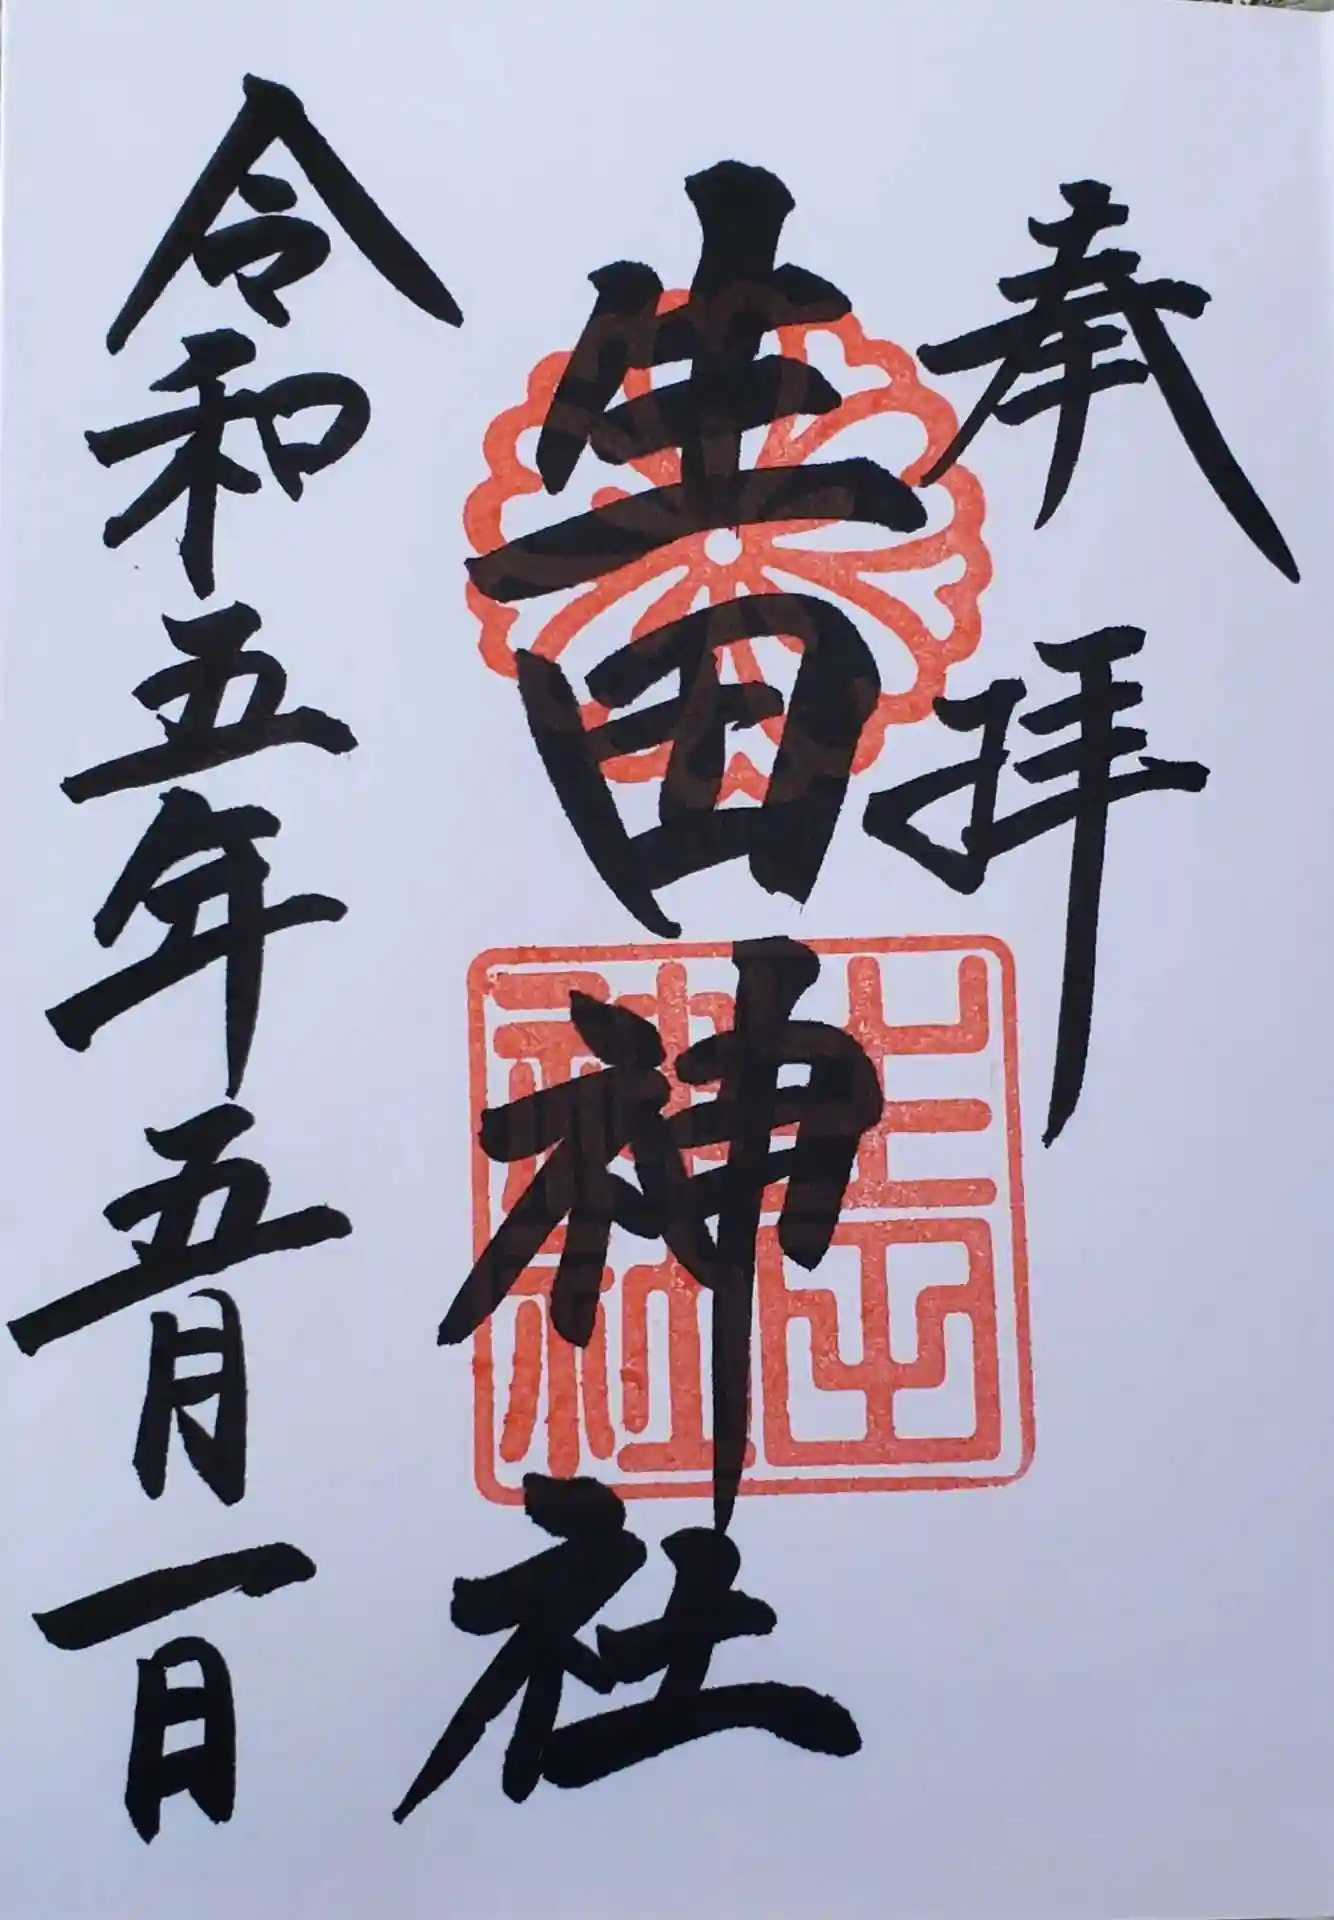 奉拝
生田神社
生田神社
令和五年五月一日